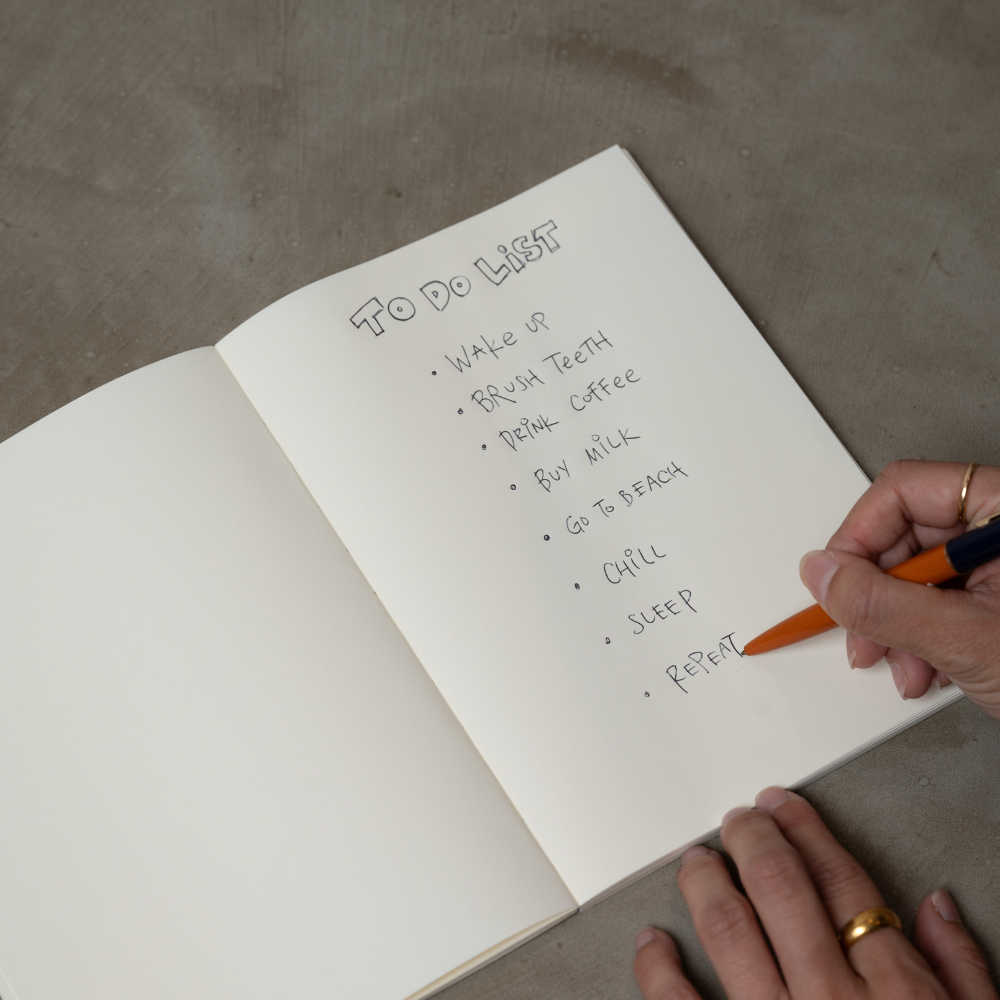 TO DO LiST
• WAKe UP
• BRUSH TeeTH
• DRiNK COFFee
• BUY MiLK
• GO TO BEACH
• CHiLL
• SLEEP
• REPEAT